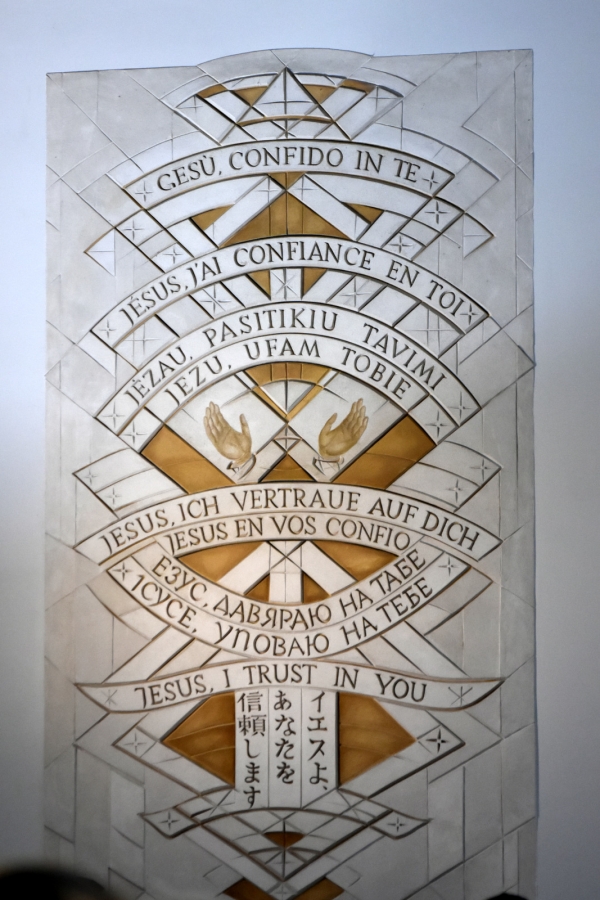 GESÙ, CONFIDO IN TE
JÉSUS, J'AI CONFIANCE EN TOI
JĖZAU, PASITIKIU TAVIMI
JEZU, UFAM TOBIE
JESUS, ICH VERTRAUE AUF DICH
JESUS EN VOS CONFIO
ЕЗУС, ДАВЯРАЮ НА ТАБЕ
ІСУСЕ, УПОВАЮ НА ТЕБЕ
JESUS, I TRUST IN YOU
イエスよ、
あなたを
信頼します